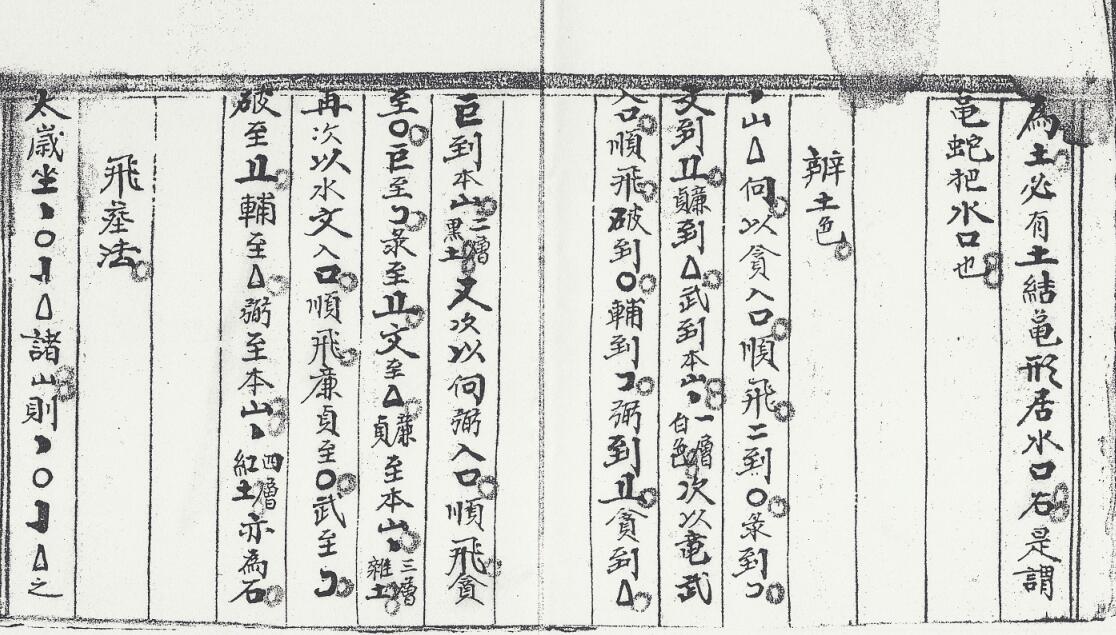 為土必有土結亀形居水口石是謂
亀蛇把水口也
辧土色
丶山△向以貪入口順飛二到〇彔到コ
文到卫廉貞到△武到本山丶一層白色次以竜武
合順飛破到〇輔到コ弼到卫貪到△
巨到本山二層黒土又次以向弼入口順飛貪
至〇巨至コ彔至卫文至△廉貞至本山丶三層雜土
再次以水文入口順飛廉貞至〇武至コ
破至卫輔至△弼至本山丶四層紅土亦為石
飛埊法
太歳坐丶〇△諸山則丶〇△之